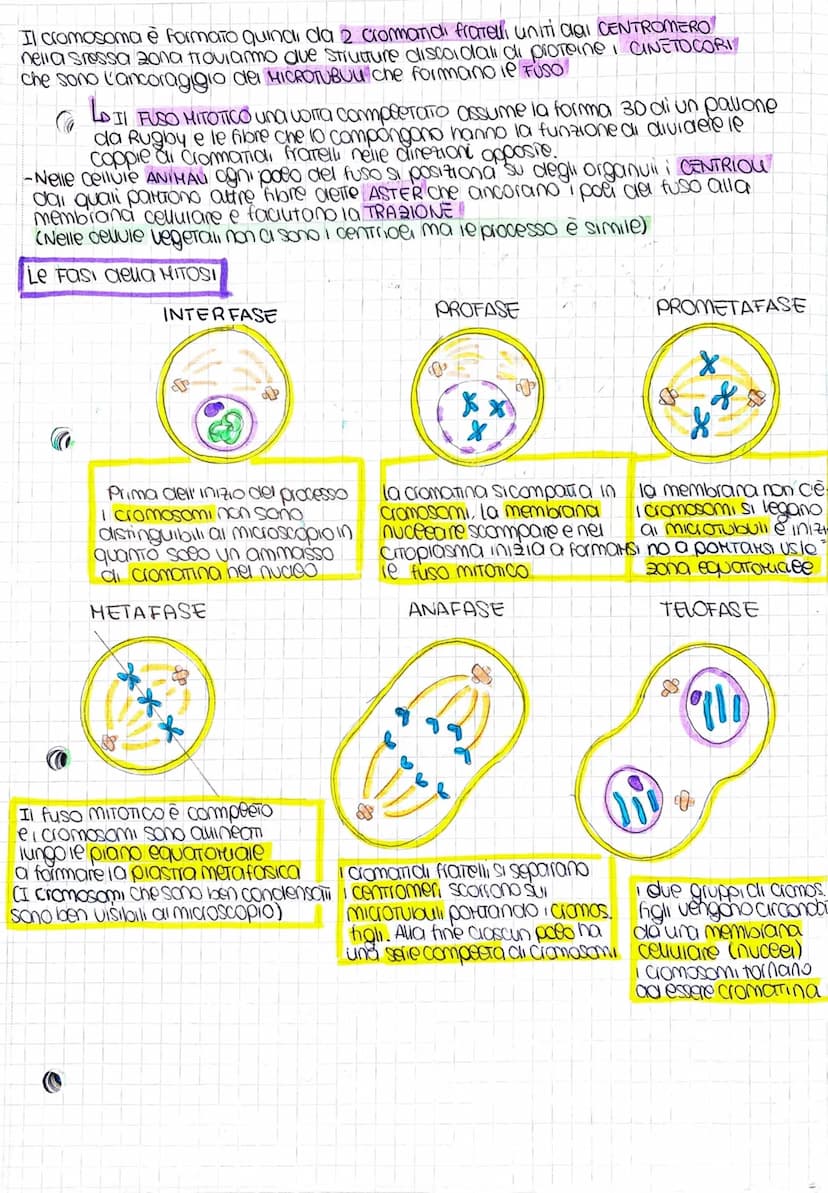 Il cromosoma è formato quindi da 2 cromatidi fratelli uniti dal CENTROMERO
nella stessa zona troviamo due strutture discoidali di proteine i CINETOCORI
che sono l'ancoraggio dei MICROTUBULI che formano il FUSO
↳ Il FUSO MITOTICO una volta completato assume la forma 3D di un pallone
da Rugby e le fibre che lo compongono hanno la funzione di dividere le
coppie di cromatidi fratelli nelle direzioni opposte.
-Nelle cellule ANIMALI ogni polo del fuso si posiziona su degli organuli i CENTRIOLI
dai quali partono altre fibre dette ASTER che ancorano i poli del fuso alla
membrana cellulare e facilitano la TRAZIONE
(Nelle cellule vegetali non ci sono i centrioli ma il processo è simile)
Le Fasi della MITOSI
INTERFASE
Prima dell'inizio del processo
i cromosomi non sono
distinguibili al microscopio in
quanto solo un ammasso
di cromatina nel nucleo
PROFASE
la cromatina si compatta in
cromosomi. La membrana
nucleare scompare e nel
citoplasma inizia a formarsi
il fuso mitotico
PROMETAFASE
la membrana non c'è
i cromosomi si legano
ai microtubuli e inizi
no a portarsi uslo
zona equatoriale
METAFASE
Il fuso mitotico è completo
e i cromosomi sono allineati
lungo il piano equatoriale
a formare la piastra metafasica
(I cromosomi che sono ben condensati
sono ben visibili al microscopio)
ANAFASE
i cromatidi fratelli si separano
i centromeri scorrono sui
microtubuli portando i cromos.
figli. Alla fine ciascun polo ha
una serie completa di cromosomi
TELOFASE
i due gruppi di cromos.
figli vengono circondti
da una membrana
cellulare (nuclei)
i cromosomi tornano
ad essere cromatina